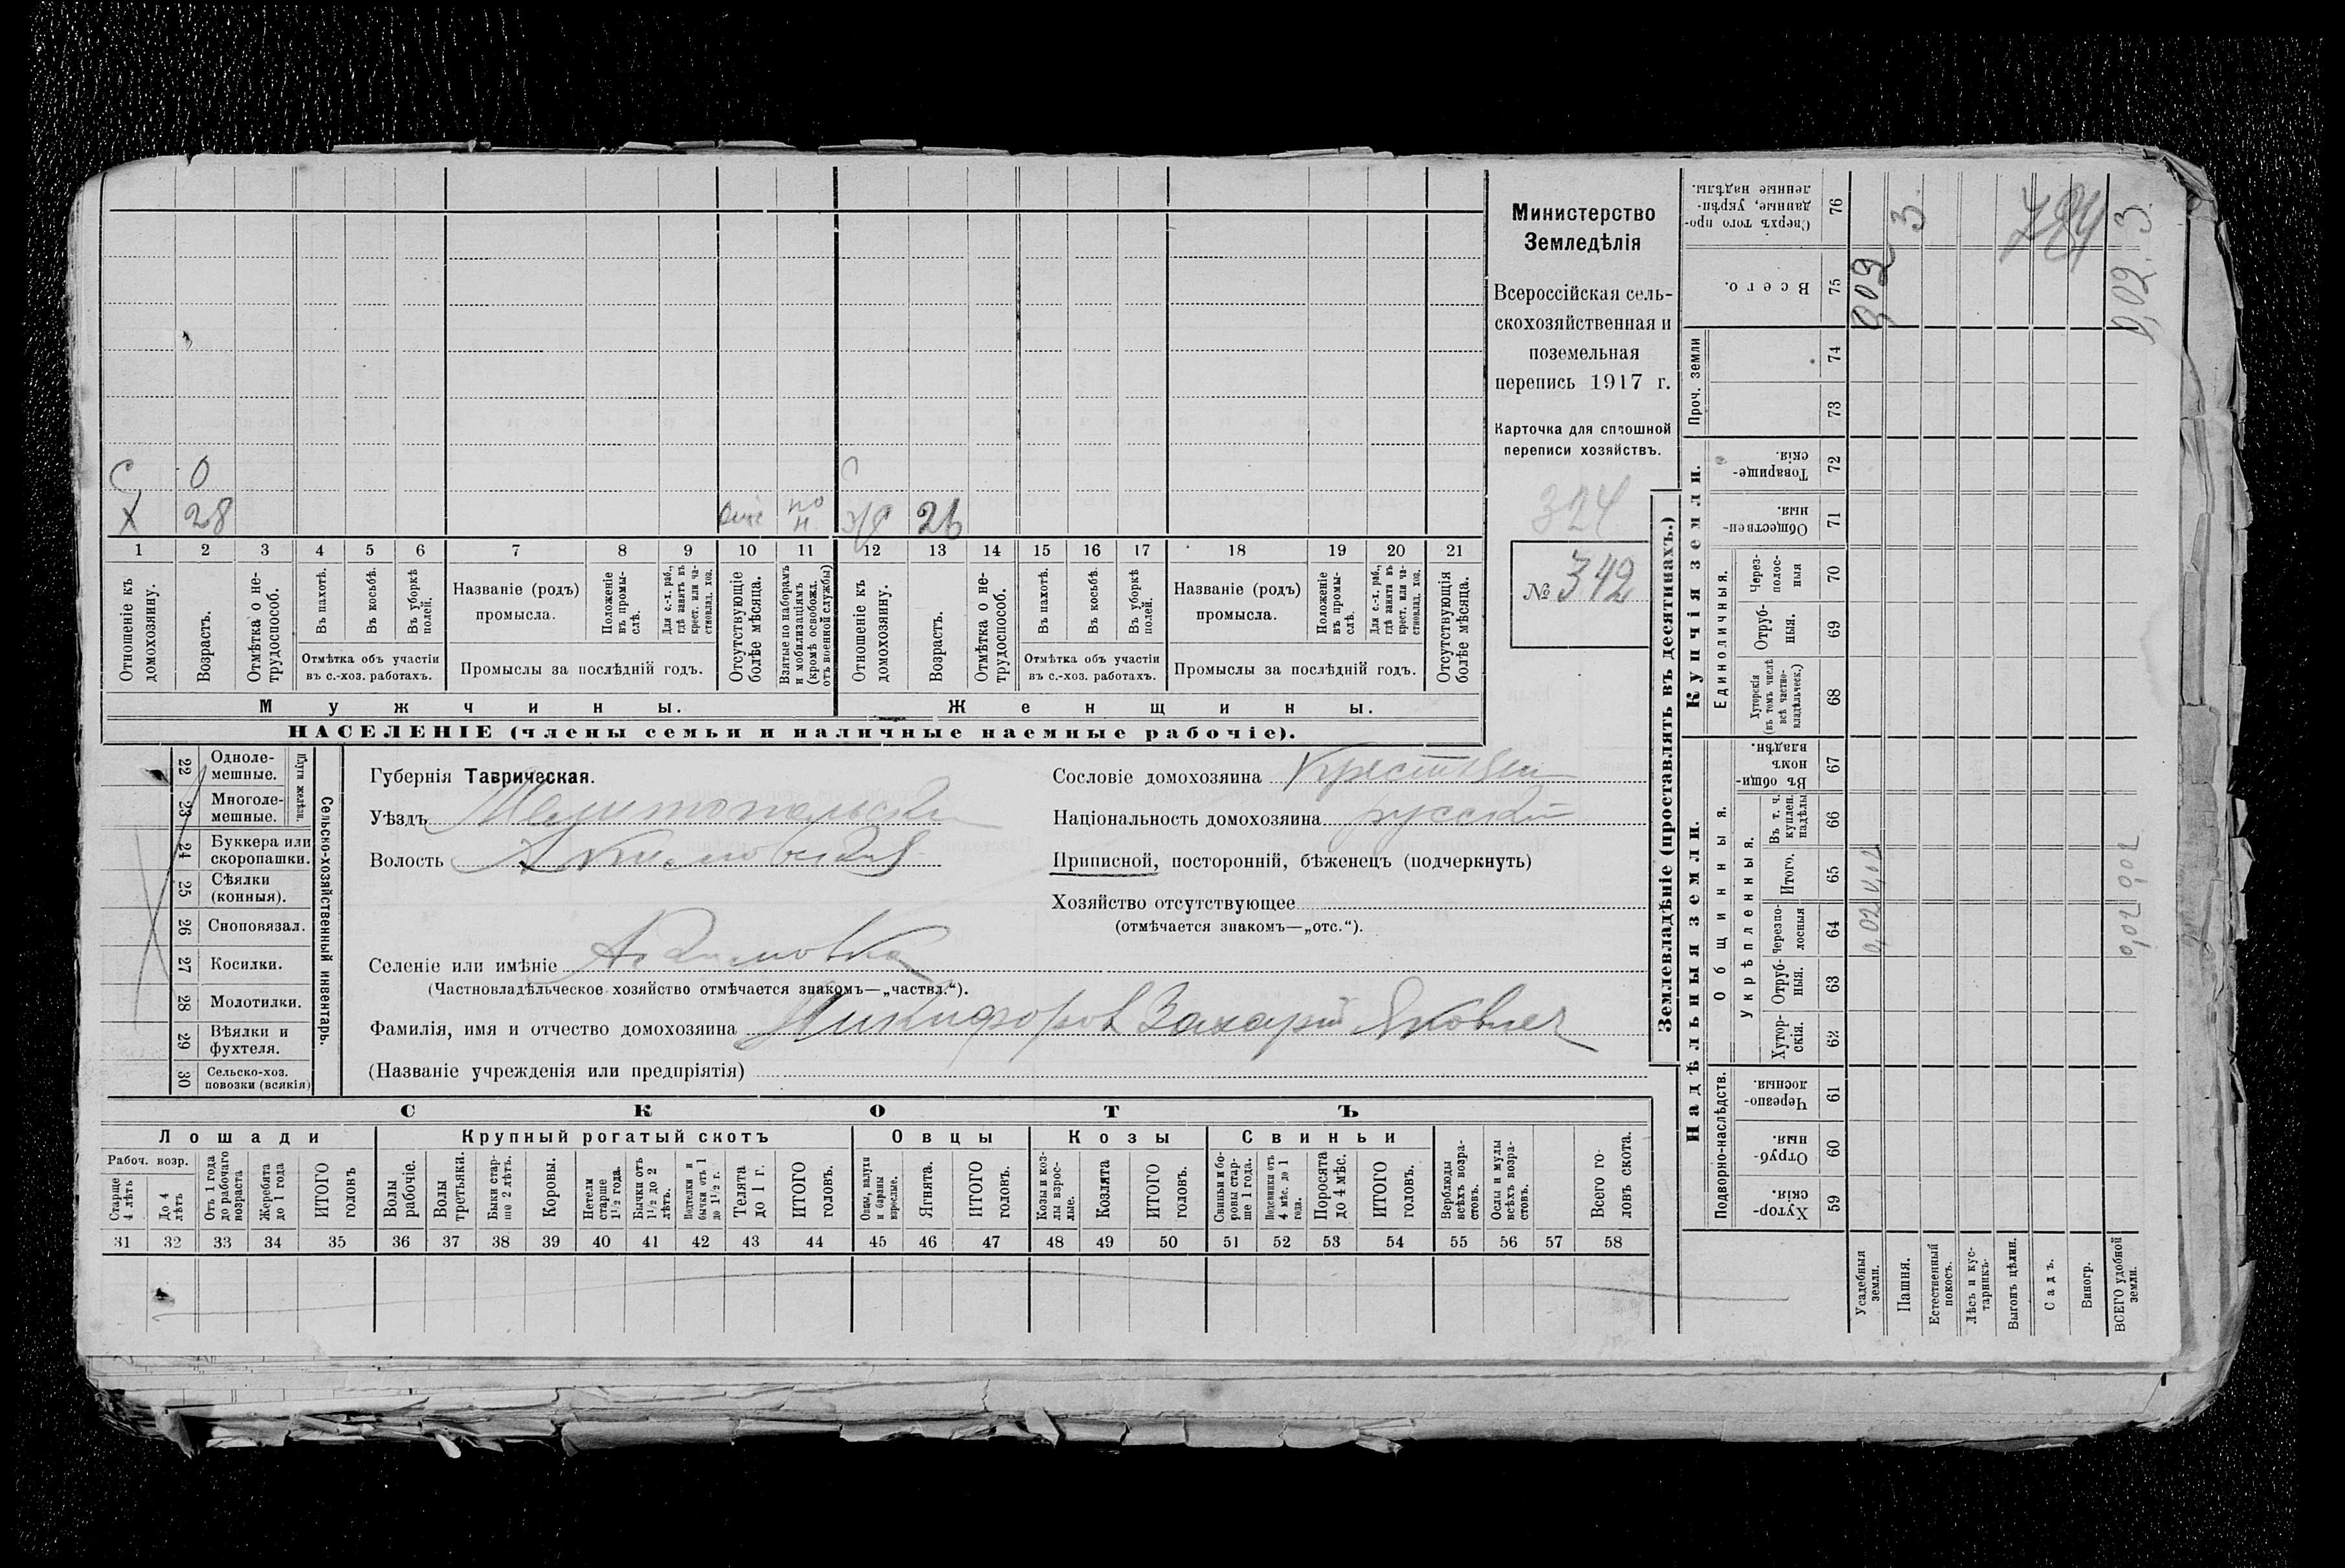 С 0
Х 28 по н. 26
1 2 3 4 5 6 7 8 9 10 11 12 13 14 15 16 17 18 19 20 21
Отношеніе къ домохозяину.
Возрастъ.
Отмѣтка о не-
трудоспособ.
Въ пахотѣ.
Въ косьбѣ.
Въ уборкѣ полей.
Отмѣтка объ участіи
въ с.-хоз. работахъ.
Названіе (родъ)
промысла.
Положеніе
въ промы-
слѣ.
Для с.-х. раб.,
гдѣ занятъ въ
крест. или ча-
стновлад. хоз.
Промыслы за послѣдній годъ.
Отсутствующіе
болѣе мѣсяца.
Взятые по наборамъ
и мобилизаціямъ
(кромѣ освобожд.
отъ военной службы)
Отношеніе къ
домохозяину.
Возрастъ.
Отмѣтка о не-
трудоспособ.
Въ пахотѣ.
Въ косьбѣ.
Въ уборкѣ
полей.
Отмѣтка объ участіи
въ с.-хоз. работахъ.
Названіе (родъ)
промысла.
Положеніе
въ промы-
слѣ.
Для с.-х. раб.,
гдѣ занята въ
крест. или ча-
стновлад. хоз.
Промыслы за послѣдній годъ.
Отсутствующія
болѣе мѣсяца.
Мужчины.
Женщины.
НАСЕЛЕНІЕ (члены семьи и наличные наемные рабочіе).
Министерство
Земледѣлія
Всероссійская сель-
скохозяйственная и
поземельная
перепись 1917 г.
Карточка для сплошной
переписи хозяйствъ.
324
№ 342
22 Одноле-
мешные.
23 Многоле-
мешные.
Плуги желѣзн.
24 Буккера или
скоропашки.
25 Сѣялки
(конныя).
26 Сноповязал.
27 Косилки.
28 Молотилки.
29 Вѣялки и
фухтеля.
30 Сельско-хоз.
повозки (всякія)
Сельско-хозяйственный инвентарь.
Губернія Таврическая.
Уѣздъ Мелитопольский
Волость
Сословіе домохозяина Крестьян
Національность домохозяина русский
Приписной, посторонній, бѣженецъ (подчеркнуть)
Хозяйство отсутствующее
(отмѣчается знакомъ—„отс.“).
Селеніе или имѣніе
(Частновладѣльческое хозяйство отмѣчается знакомъ—„частвл.“).
Фамилія, имя и отчество домохозяина Никифоров Захарий Яковлев
(Названіе учрежденія или предпріятія)
СКОТЪ
Лошади
Крупный рогатый скотъ
Овцы
Козы
Свиньи
Рабоч. возр.
Старше
4 лѣтъ
До 4
лѣтъ
Отъ 1 года
до рабочаго
возраста
Жеребята
до 1 года
ИТОГО
головъ
Волы
рабочіе.
Волы
третьяки.
Быки стар-
ше 2 лѣтъ.
Коровы.
Нетели
старше
1½ года.
Бычки отъ
1½ до 2
лѣтъ.
Подтелки и
бычки отъ 1
до 1½ г.
Телята
до 1 г.
ИТОГО
головъ.
Овцы, валухи
и бараны
взрослые.
Ягнята.
ИТОГО
головъ.
Козы и коз-
лы взрос-
лые.
Козлята
ИТОГО
головъ.
Свиньи и бо-
ровы стар-
ше 1 года.
Подсвинки отъ
4 мѣс. до 1
года.
Поросята
до 4 мѣс.
ИТОГО
головъ.
Верблюды
всѣхъ возра-
стовъ.
Ослы и мулы
всѣхъ возра-
стовъ.
Всего го-
ловъ скота.
31 32 33 34 35 36 37 38 39 40 41 42 43 44 45 46 47 48 49 50 51 52 53 54 55 56 57 58
Землевладѣніе (проставлять въ десятинахъ.)
Надѣльныя земли.
Купчія земли.
Проч. земли
Подворно-наслѣдств.
Общинныя.
Укрѣпленныя.
Единоличныя.
Хутор-
скія. 59
Отруб-
ныя. 60
Черезпо-
лосныя. 61
Хутор-
скія. 62
Отруб-
ныя. 63
Черезпо-
лосныя 64
Итого. 65
Въ т. ч.
куплен.
надѣлы 66
Въ общи-
номъ
владѣн. 67
Хуторскія
(въ томъ числѣ
всѣ частно-
владѣльческ.) 68
Отруб-
ныя. 69
Через-
полос-
ныя 70
Обществен-
ныя. 71
Товарище-
скія. 72
73
74
Всего. 75
Сверхъ того про-
данные, укрѣп-
ленные надѣлы. 76
Усадебныя
земли. 0,02 0,02 0,02
Пашня. 3
Естественный
покосъ.
Лѣсъ и кус-
тарникъ.
Выгонъ цѣлин.
Садъ.
Виногр.
ВСЕГО удобной
земли. 0,02 0,02 0,02. 3
784